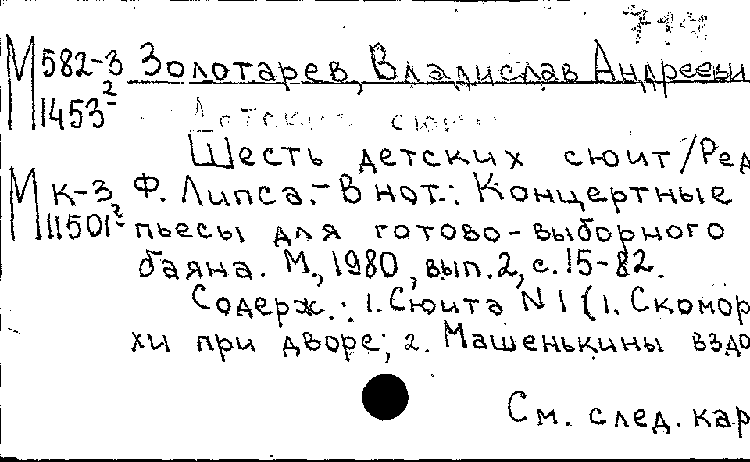 714
М 582-3 Золотарев, Владислав Андрееви
1453² Детские сюи
Шесть детских сюит/Ред
М К-3 Ф. Липса.- В нот.: Концертные
11501² пьесы для готово-выборного
баяна. М., 1980, вып. 2, с. 15-82.
Содерж.: 1. Сюита N 1 (1. Скомор
хи при дворе; 2. Машенькины вздо
См. след. кар